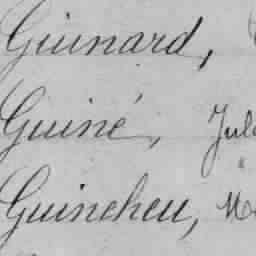 Guinard,
Guiné, Jul
Guineheu, M